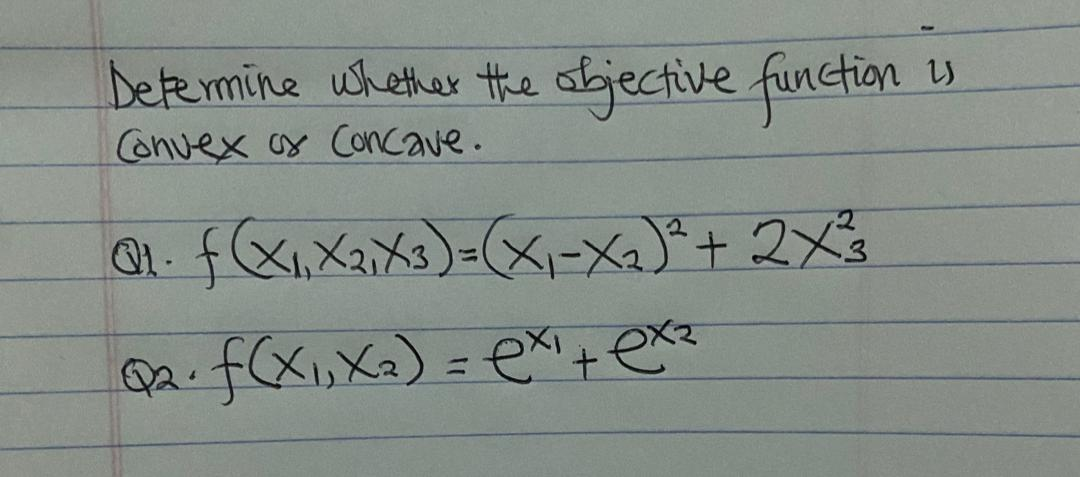 Determine whether the objective function is
Convex or Concave.
Q1. f(x₁,x₂,x₃)=(x₁-x₂)²+ 2x₃²
Q2. f(x₁,x₂) = eˣ¹+eˣ²